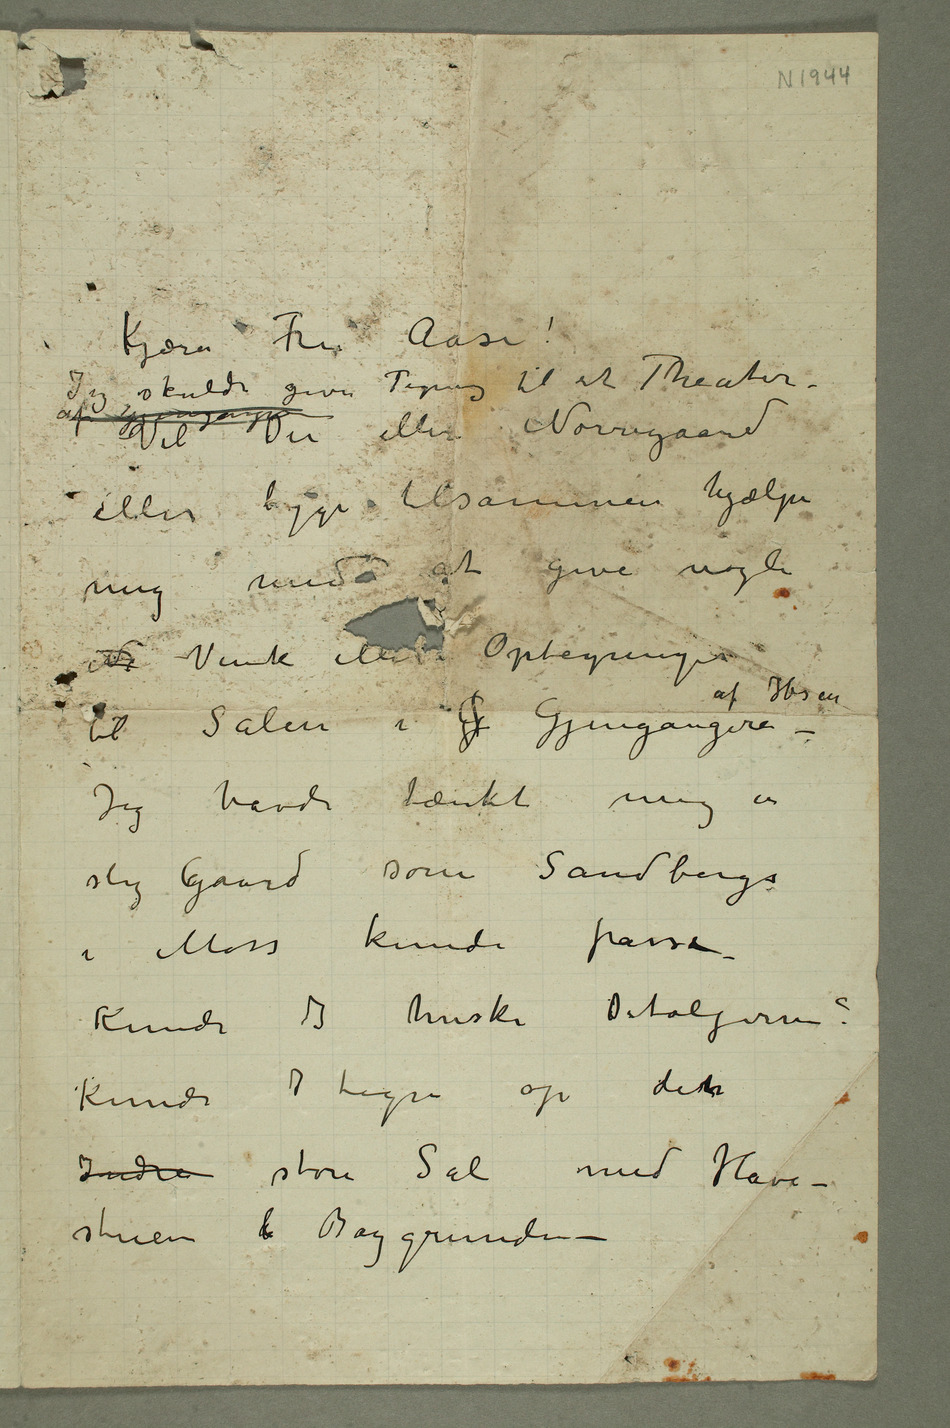 N 1944
Kjære Fru Aase!
Jeg skulde give Tegning til et Theater-
af gjengange
Vil De eller Nørregaard
eller begge tilsammen hjælpe
mig med at give nogle
Vink eller Optegninger
til Salen i G Gjengangere –
af Ibsen
Jeg havde tænkt mig en
slig Gaard som Sandbergs
i Moss kunde passe –
Kunde I huske Detaljerne?
Kunde I tegne op den
Indre store Sal med Have-
stuen i Baggrunden –